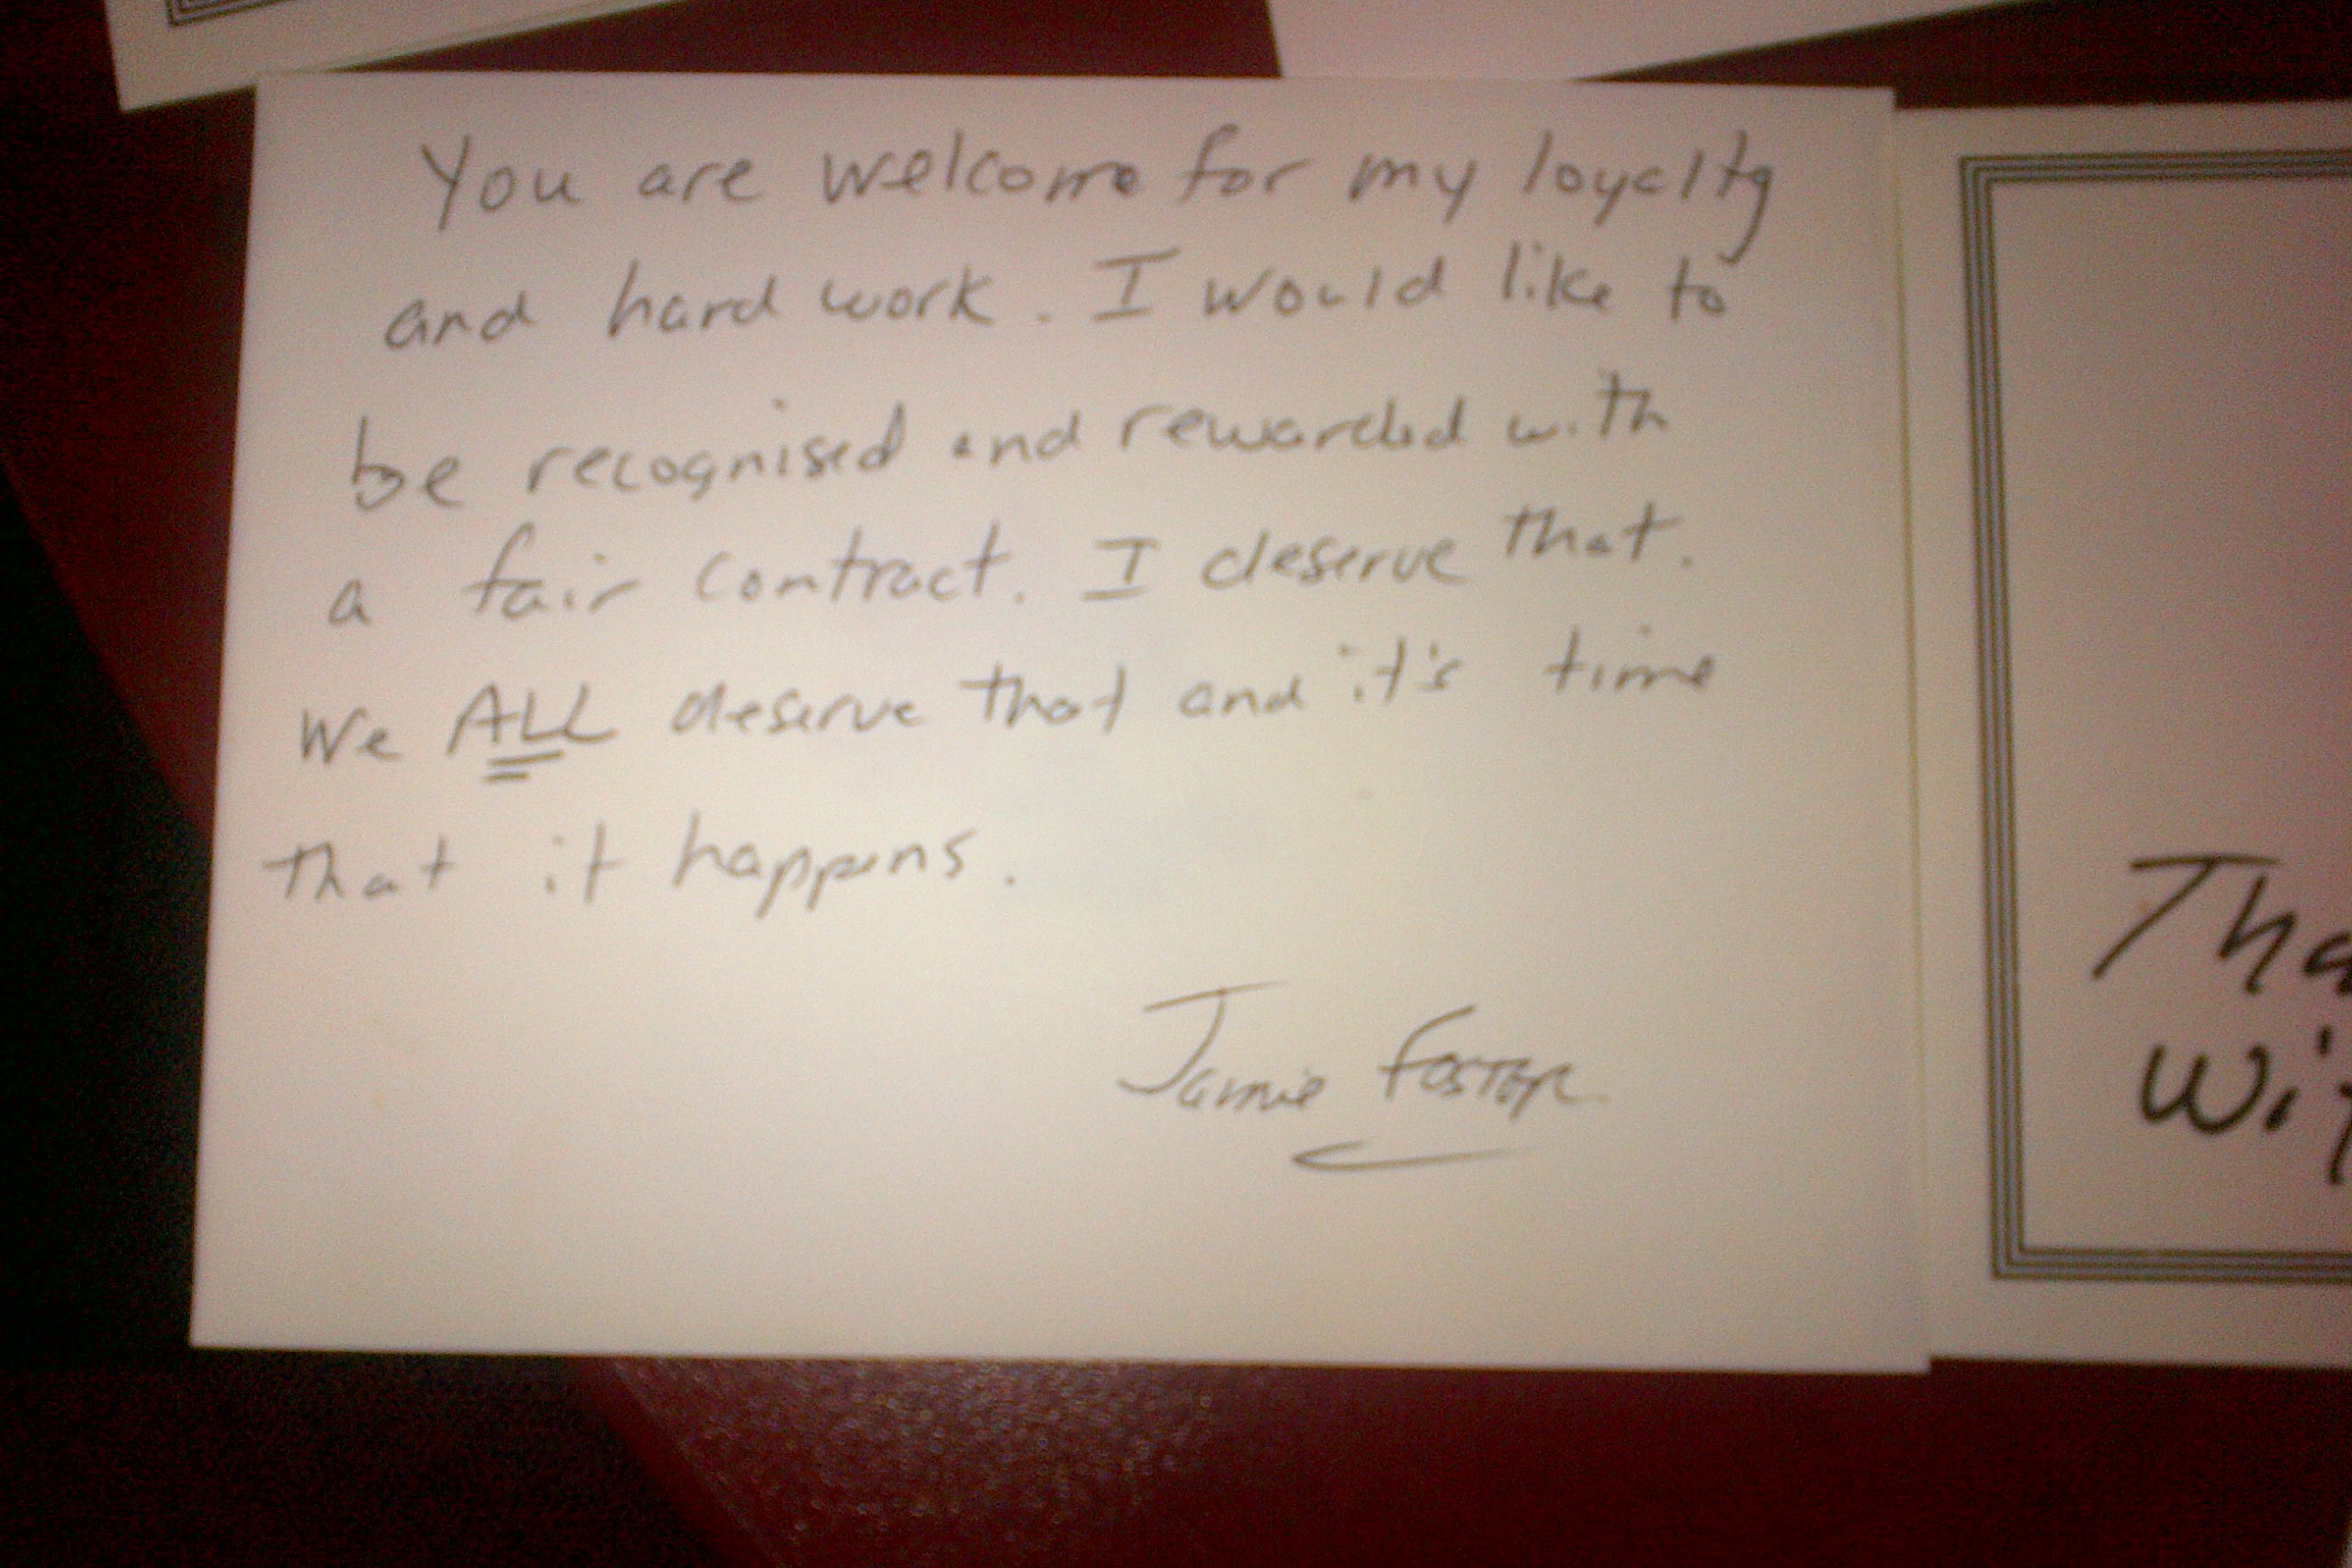 You are welcome for my loyalty
and hard work. I would like to
be recognised and rewarded with
a fair contract. I deserve that.
We ALL deserve that and it's time
that it happens.
Jamie Foster
Tha
Wit